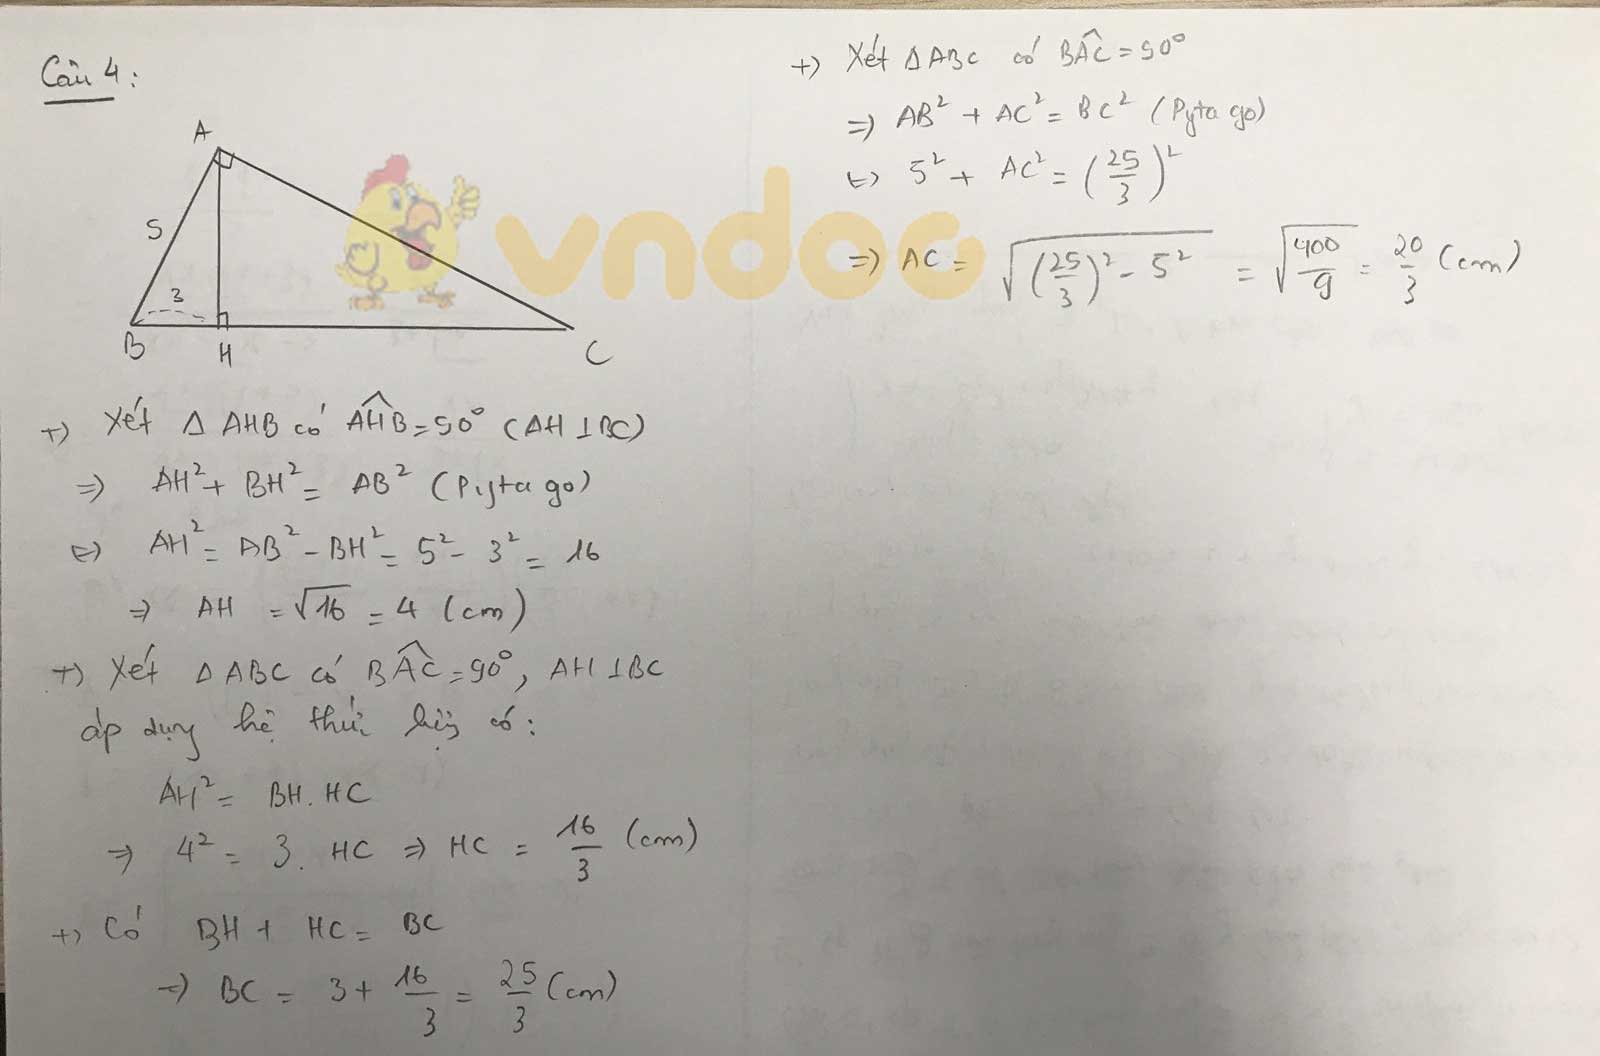 Câu 4:
A
5
3
B
H
C
+) Xét Δ AHB có AĤB = 90° (AH ⊥ BC)
=> AH² + BH² = AB² (Pytago)
<=> AH² = AB² - BH² = 5² - 3² = 16
=> AH = √16 = 4 (cm)
+) Xét Δ ABC có BÂC = 90°, AH ⊥ BC
áp dụng hệ thức lượng có:
AH² = BH. HC
=> 4² = 3. HC => HC = 16/3 (cm)
+) Có BH + HC = BC
=> BC = 3 + 16/3 = 25/3 (cm)
+) Xét Δ ABC có BÂC = 90°
=> AB² + AC² = BC² (Pytago)
<=> 5² + AC² = (25/3)²
=> AC = √((25/3)² - 5²) = √(400/9) = 20/3 (cm)
vndoc